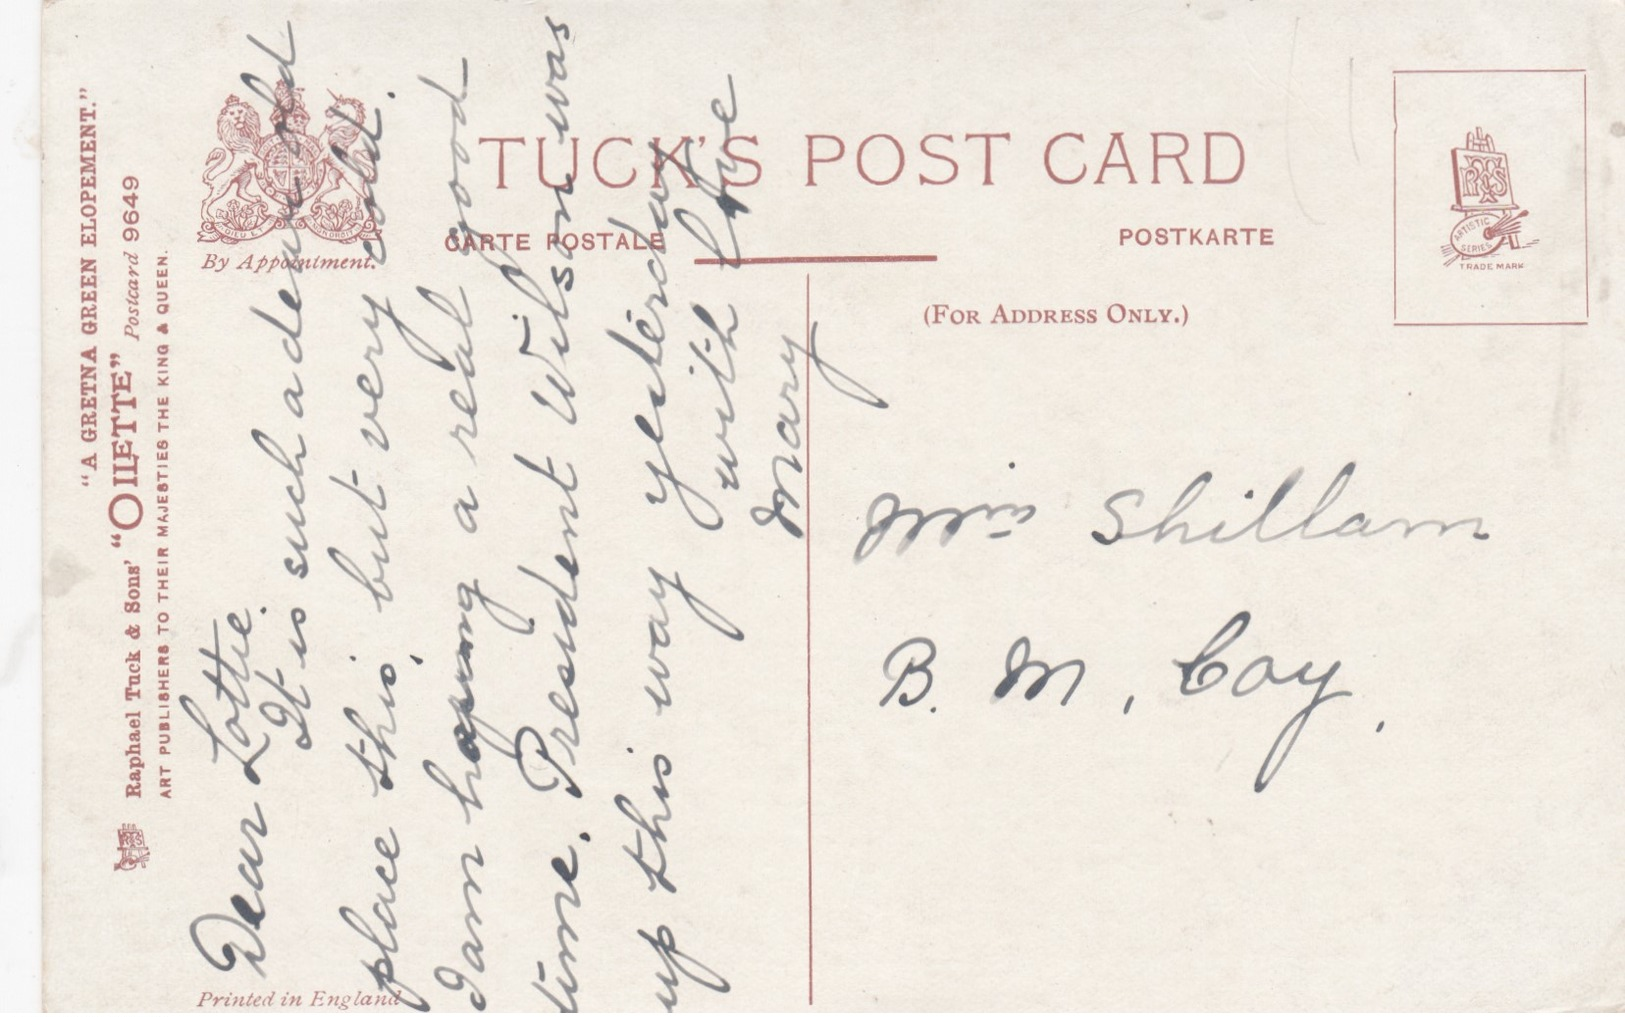 "A GRETNA GREEN ELOPEMENT."
Raphael Tuck & Sons' "OILETTE" Postcard 9649
ART PUBLISHERS TO THEIR MAJESTIES THE KING & QUEEN.
By Appointment.
TUCK'S POST CARD
CARTE POSTALE
POSTKARTE
(FOR ADDRESS ONLY.)
ARTISTIC
SERIES
TRADE MARK
Printed in England
Dear Lottie.
It is such a dear old
place this, but very cold.
I am having a real good
time. President Wilson was
up this way yesterday
with love
Mary
Miss Shillam
B. M. Coy,